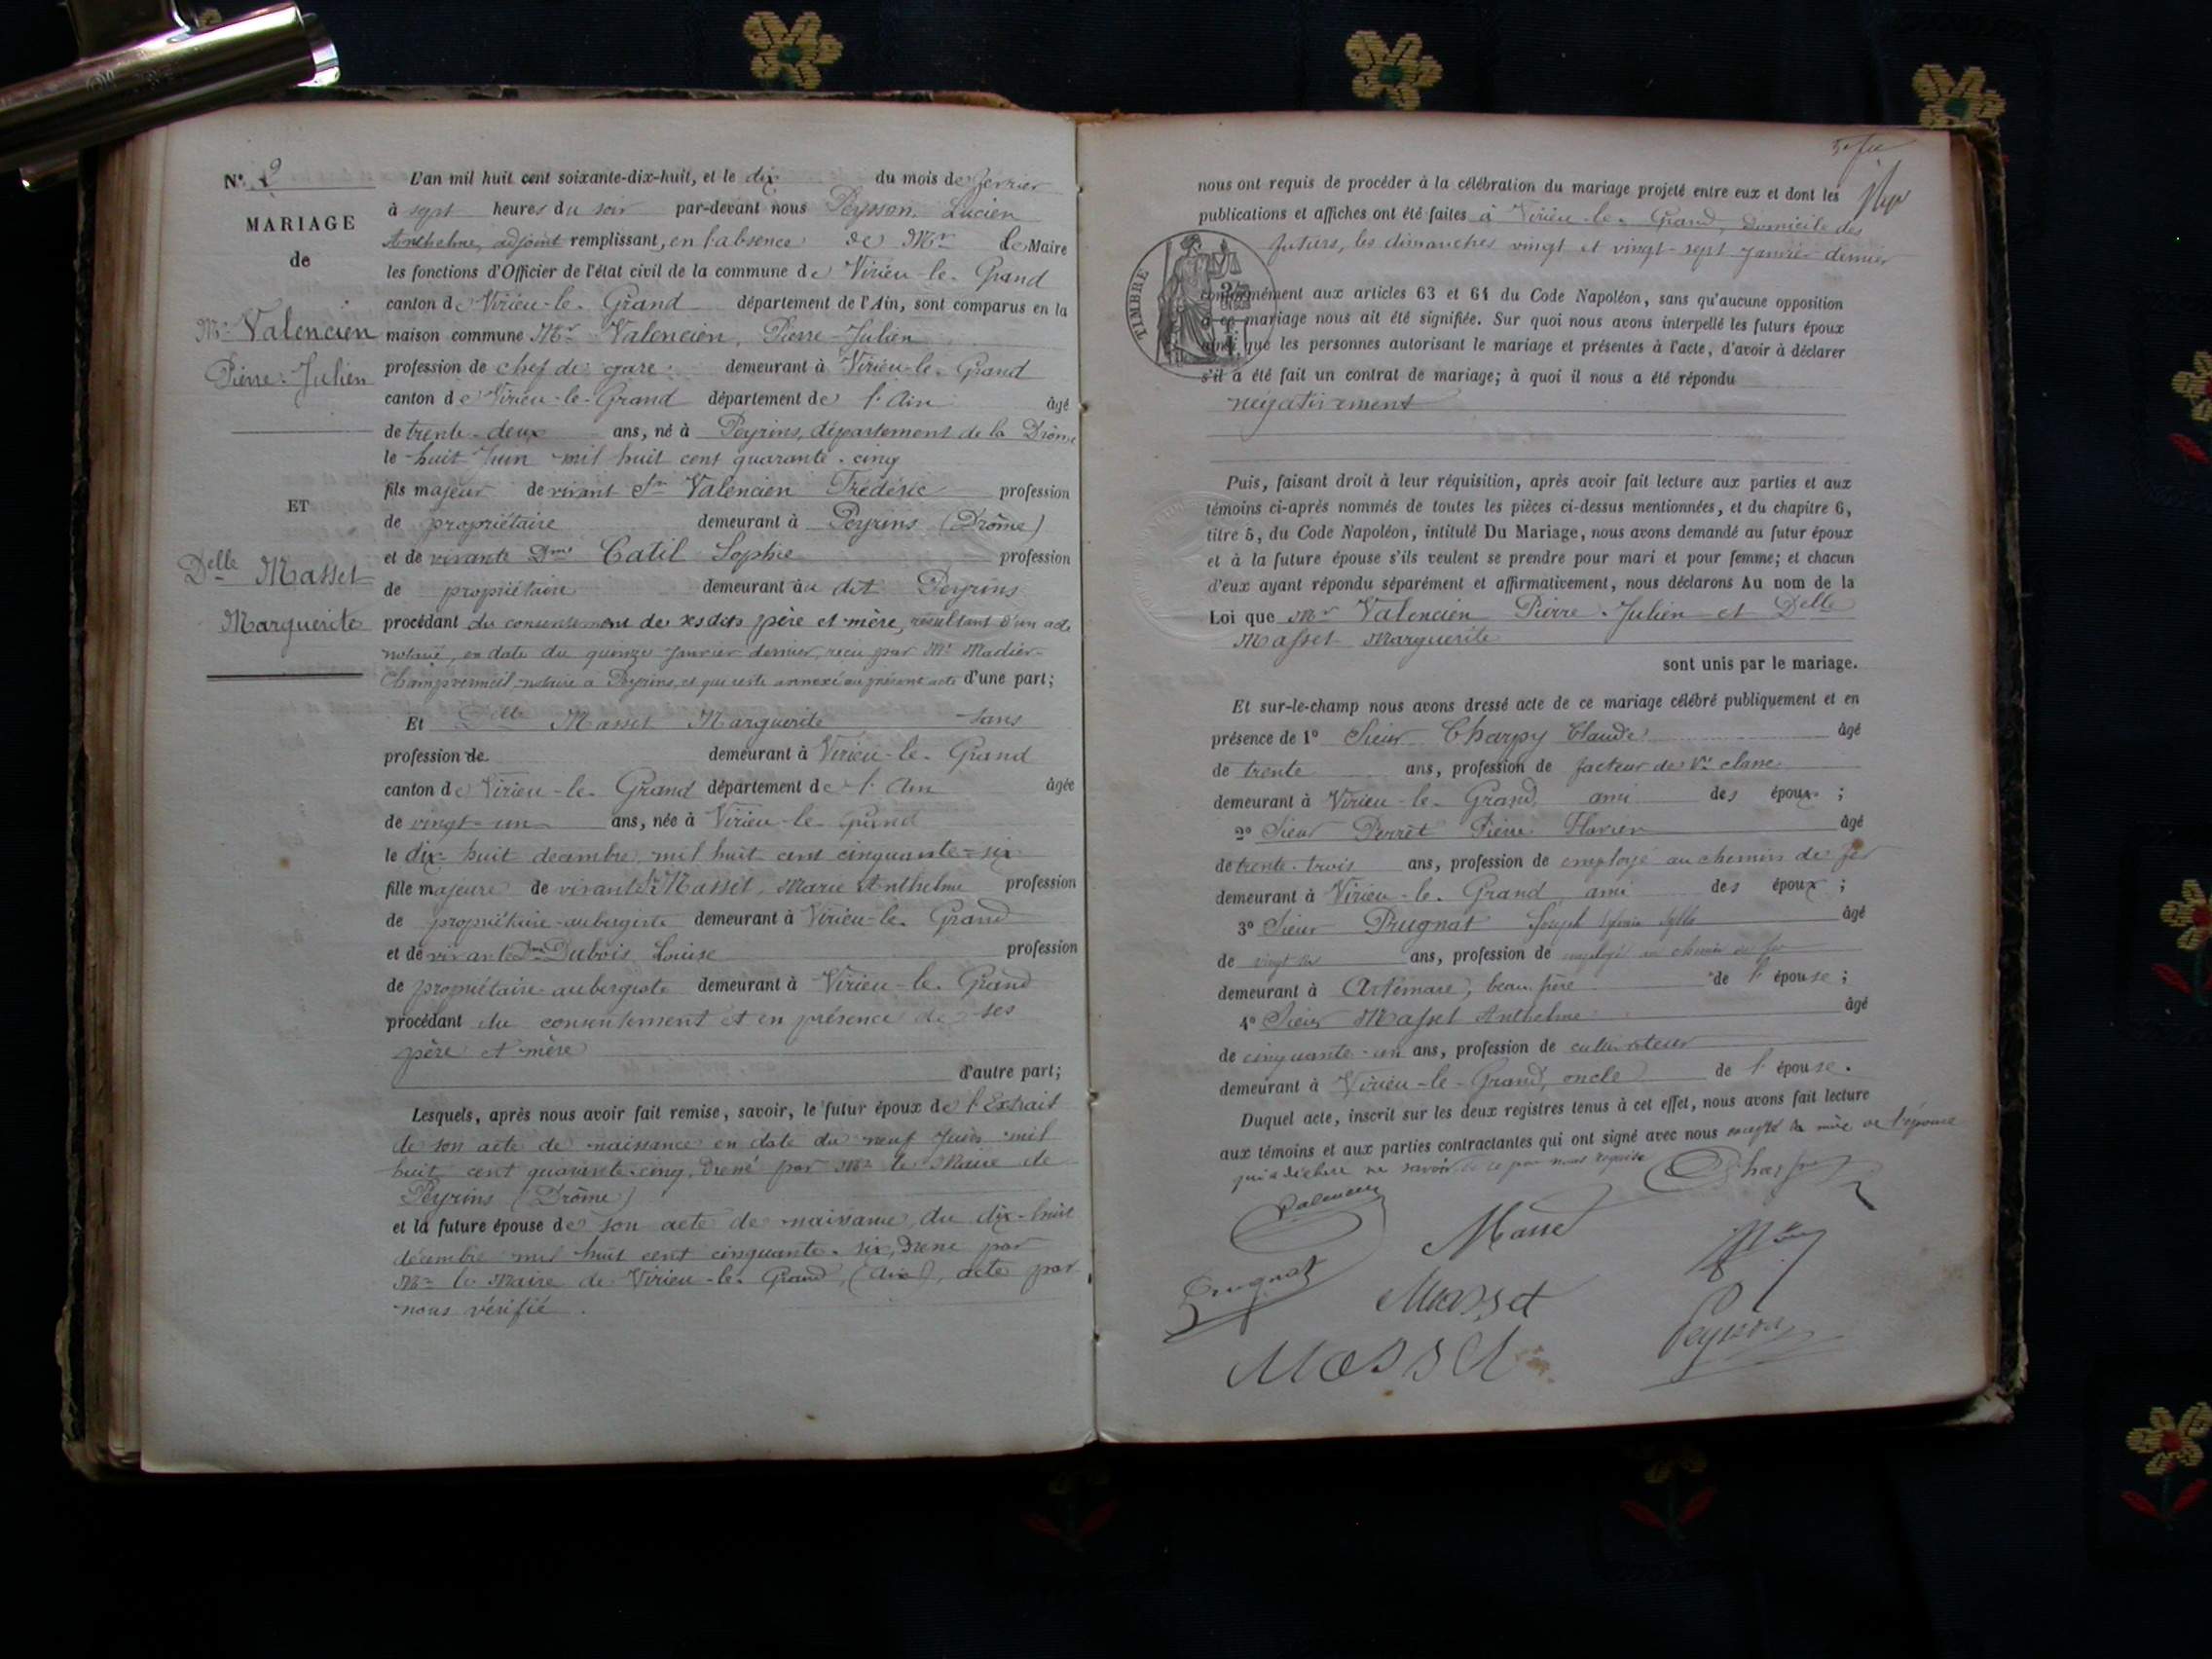 N° 2
MARIAGE
de
Mr Valencien
Pierre-Julien
ET
Delle Masset
Marguerite
L'an mil huit cent soixante-dix-huit, et le dix du mois de février
à sept heures du soir par-devant nous Peysson, Lucien
Anthelme, adjoint remplissant, en l'absence de Mr le Maire
les fonctions d'Officier de l'état civil de la commune de Virieu-le-Grand
canton de Virieu-le-Grand département de l'Ain, sont comparus en la
maison commune Mr Valencien, Pierre-Julien
profession de chef de gare demeurant à Virieu-le-Grand
canton de Virieu-le-Grand département de l'Ain âgé
de trente-deux ans, né à Peyrins, département de la Drôme
le huit Juin mil huit cent quarante-cinq
fils majeur de vivant Sr Valencien Frédéric profession
de propriétaire demeurant à Peyrins (Drôme)
et de vivante Dme Catil Sophie profession
de propriétaire demeurant au dit Peyrins
procédant du consentement de ses dits père et mère, résultant d'un acte
notarié, en date du quinze Janvier dernier, reçu par Me Madier-
notaire à Peyrins, et qui reste annexé au présent acte d'une part;
Et Delle Masset Marguerite sans
profession de demeurant à Virieu-le-Grand
canton de Virieu-le-Grand département de l'Ain âgée
de vingt-un ans, née à Virieu-le-Grand
le dix-huit décembre mil huit cent cinquante-six
fille majeure de vivant Sr Masset, Marie Anthelme profession
de propriétaire-aubergiste demeurant à Virieu-le-Grand
et de vivante Dme Dubois Louise profession
de propriétaire-aubergiste demeurant à Virieu-le-Grand
procédant du consentement et en présence de ses
père et mère
d'autre part;
Lesquels, après nous avoir fait remise, savoir, le futur époux de l'Extrait
de son acte de naissance en date du neuf Juin mil
huit cent quarante-cinq, dressé par Mr le Maire de
Peyrins (Drôme)
et la future épouse de son acte de naissance du dix-huit
décembre mil huit cent cinquante-six, dressé par
Mr le Maire de Virieu-le-Grand, (Ain), acte par
nous vérifié.
nous ont requis de procéder à la célébration du mariage projeté entre eux et dont les
publications et affiches ont été faites à Virieu-le-Grand, Domicile des
futurs, les dimanches vingt et vingt-sept Janvier dernier
TIMBRE
conformément aux articles 63 et 64 du Code Napoléon, sans qu'aucune opposition
à ce mariage nous ait été signifiée. Sur quoi nous avons interpellé les futurs époux
ainsi que les personnes autorisant le mariage et présentes à l'acte, d'avoir à déclarer
s'il a été fait un contrat de mariage; à quoi il nous a été répondu
négativement
Puis, faisant droit à leur réquisition, après avoir fait lecture aux parties et aux
témoins ci-après nommés de toutes les pièces ci-dessus mentionnées, et du chapitre 6,
titre 5, du Code Napoléon, intitulé Du Mariage, nous avons demandé au futur époux
et à la future épouse s'ils veulent se prendre pour mari et pour femme; et chacun
d'eux ayant répondu séparément et affirmativement, nous déclarons Au nom de la
Loi que Mr Valencien Pierre-Julien et Delle
Masset Marguerite
sont unis par le mariage.
Et sur-le-champ nous avons dressé acte de ce mariage célébré publiquement et en
présence de 1° Sieur Charpy Claude âgé
de trente ans, profession de facteur de 1re classe
demeurant à Virieu-le-Grand, ami des époux ;
2° Sieur Perret Pierre Flavien âgé
de trente-trois ans, profession de employé au chemin de fer
demeurant à Virieu-le-Grand ami des époux ;
3° Sieur Prugnat Joseph âgé
de ans, profession de employé au chemin de fer
demeurant à Artemare, beau-frère de l'épouse ;
4° Sieur Masset Anthelme âgé
de cinquante-un ans, profession de cultivateur
demeurant à Virieu-le-Grand, oncle de l'épouse.
Duquel acte, inscrit sur les deux registres tenus à cet effet, nous avons fait lecture
aux témoins et aux parties contractantes qui ont signé avec nous excepté la mère de l'épouse
qui a déclaré ne savoir de ce par nous requise
Valencien
Charpy
Masset
Prugnat
Masset
Peysson
Masset